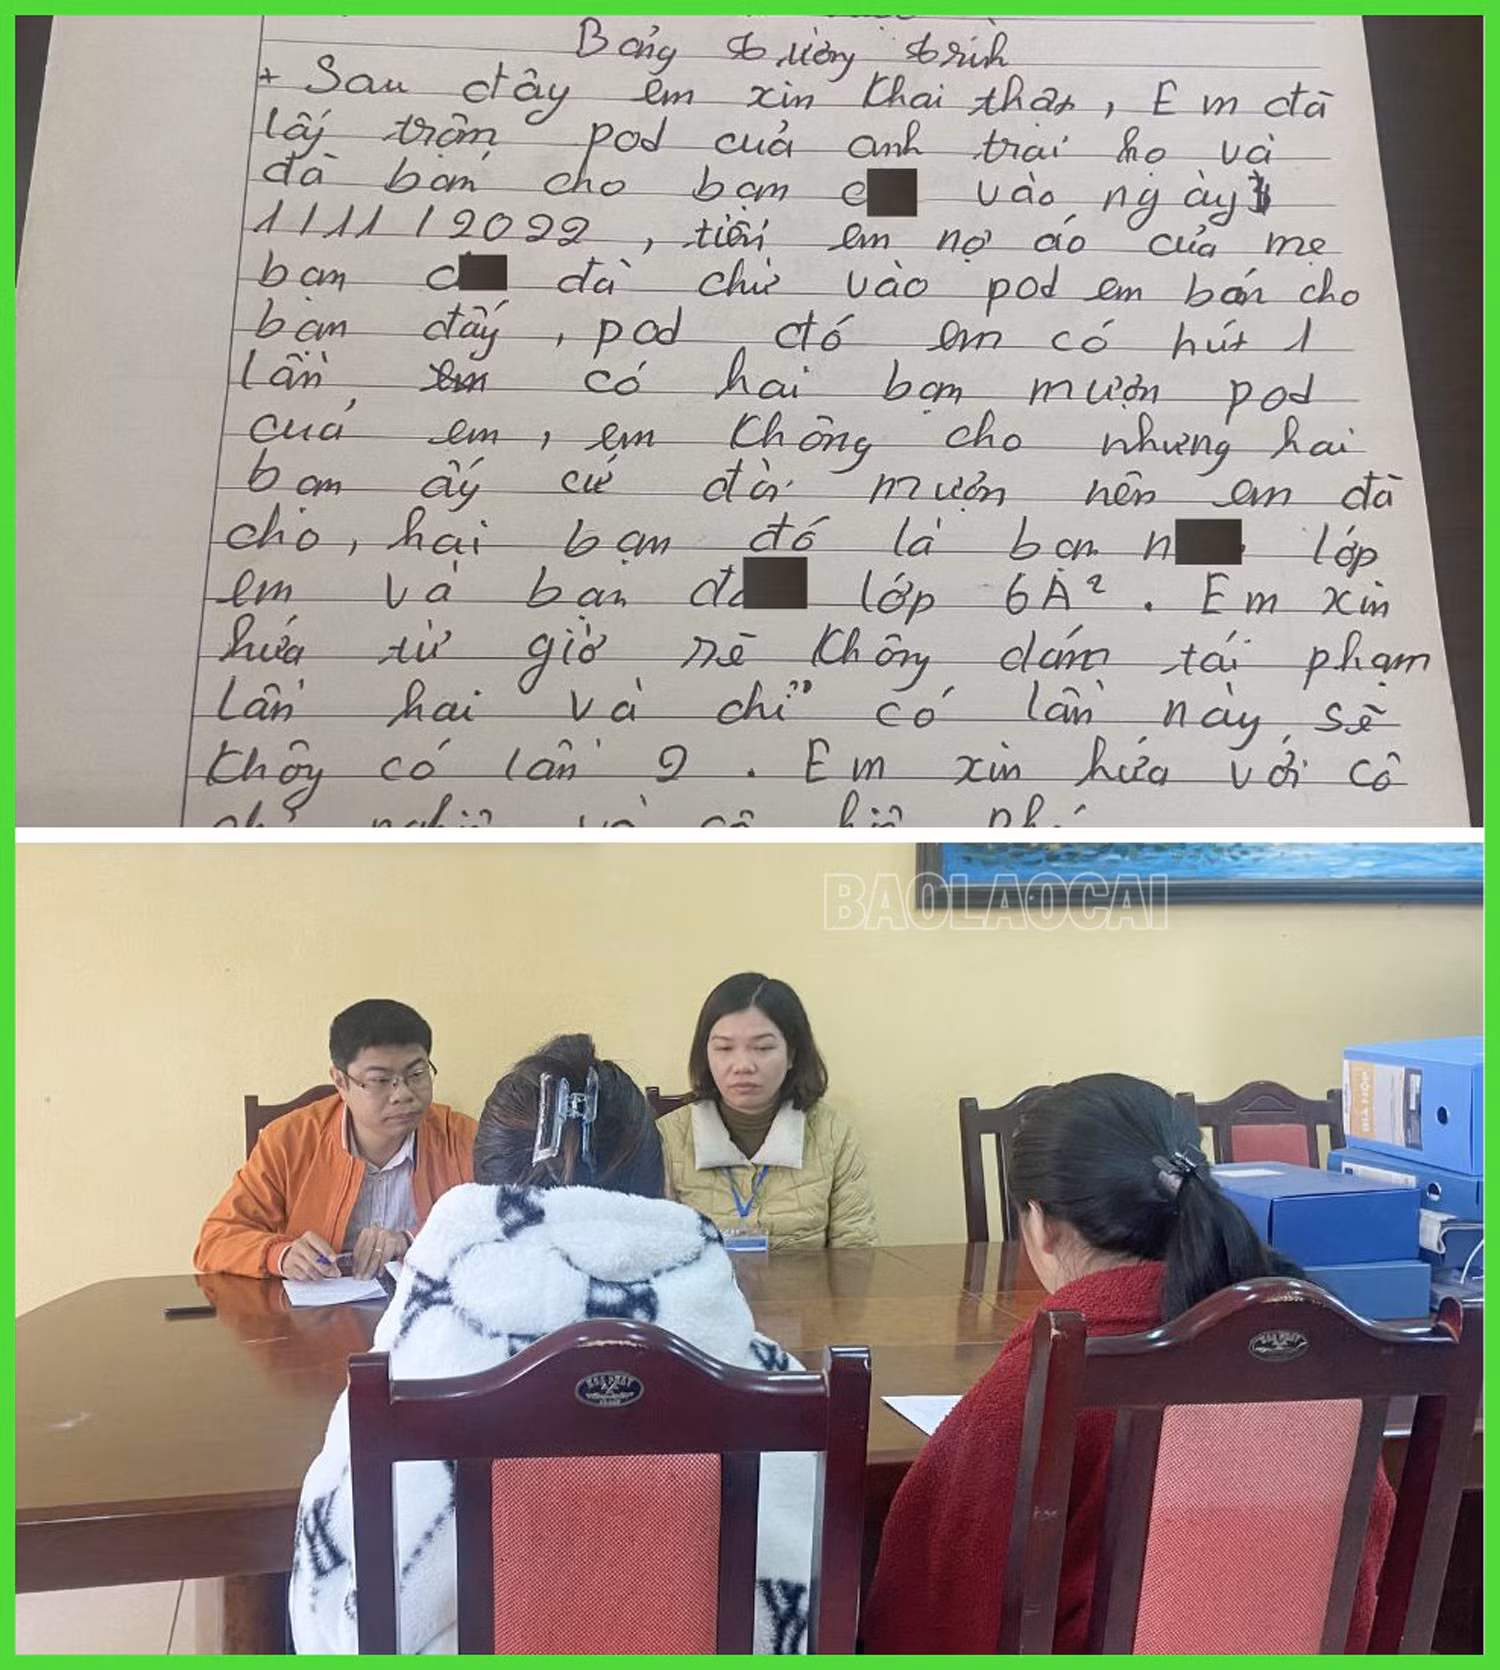 Bảng tường trình
+ Sau đây em xin khai thật, Em đã
lấy trộm pod của anh trai họ và
đã bán cho bạn c vào ngày
1/11/2022, tiền em nợ áo của mẹ
bạn c đã chừ vào pod em bán cho
bạn đấy, pod đó em có hút 1
lần, có hai bạn mượn pod
của em, em không cho nhưng hai
bạn ấy cứ đòi mượn nên em đã
cho, hai bạn đó là bạn n lớp
em và bạn đ lớp 6A². Em xin
hứa từ giờ sẽ không dám tái phạm
lần hai và chỉ có lần này, sẽ
không có lần 2. Em xin hứa với cô
BAOLAOCAI
HOA PHAT